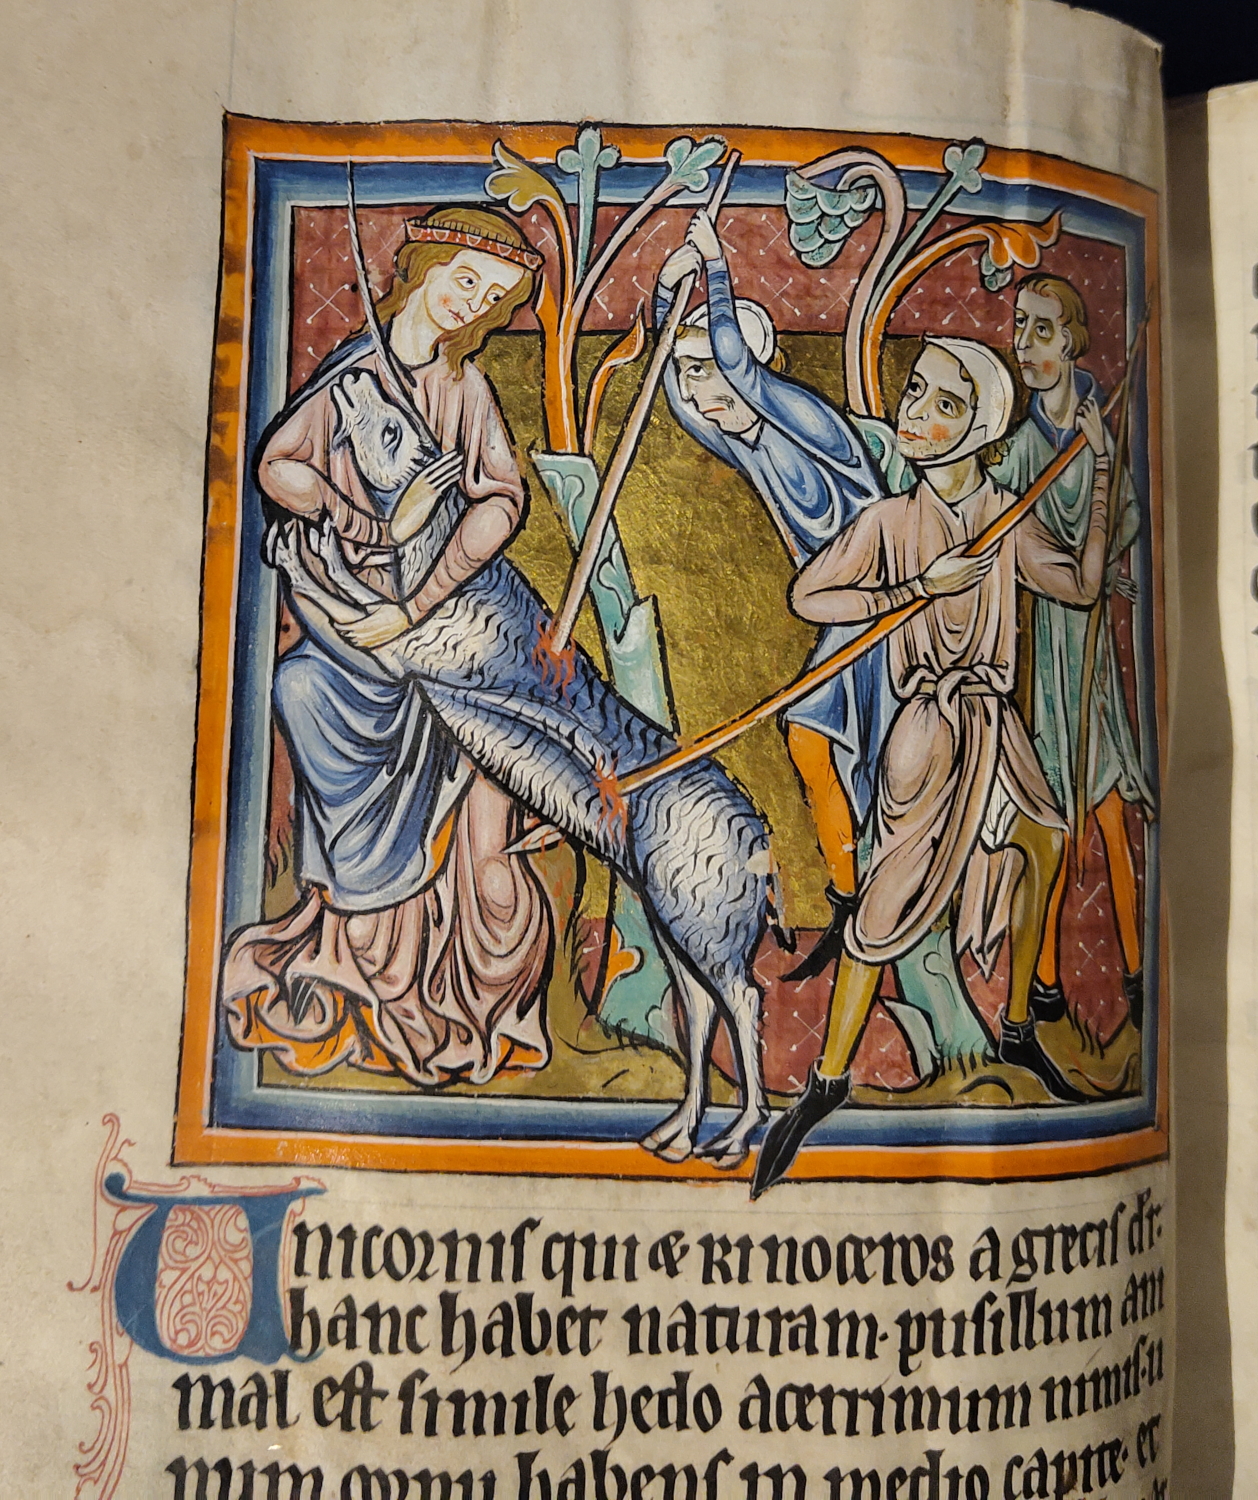 Unicornis qui & Rinoceros a grecis dr̄.
hanc habet naturam. pusillum ani
mal est simile hedo acerrimum nimis. u
num cornu habens in medio capite. et